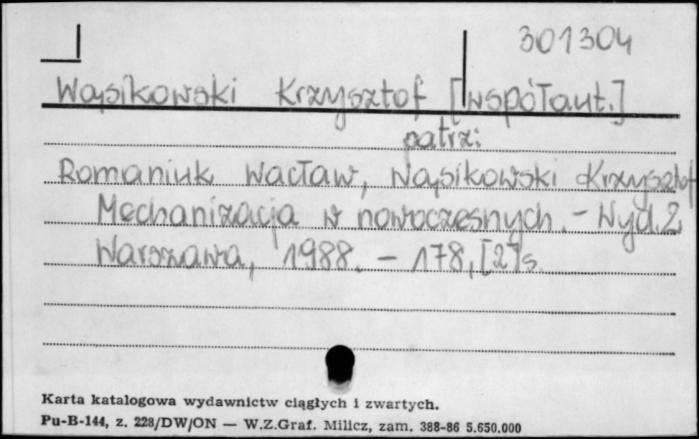 301304
Wąsikowski Krzysztof [współaut.]
patrz:
Romaniuk Wacław, Wąsikowski Krzysztof
Mechanizacja w nowoczesnych. - Wyd. 2
Warszawa, 1988. - 178, [2] s.
Karta katalogowa wydawnictw ciągłych i zwartych.
Pu-B-144, z. 228/DW/ON — W.Z.Graf. Milicz, zam. 388-86 5.650.000